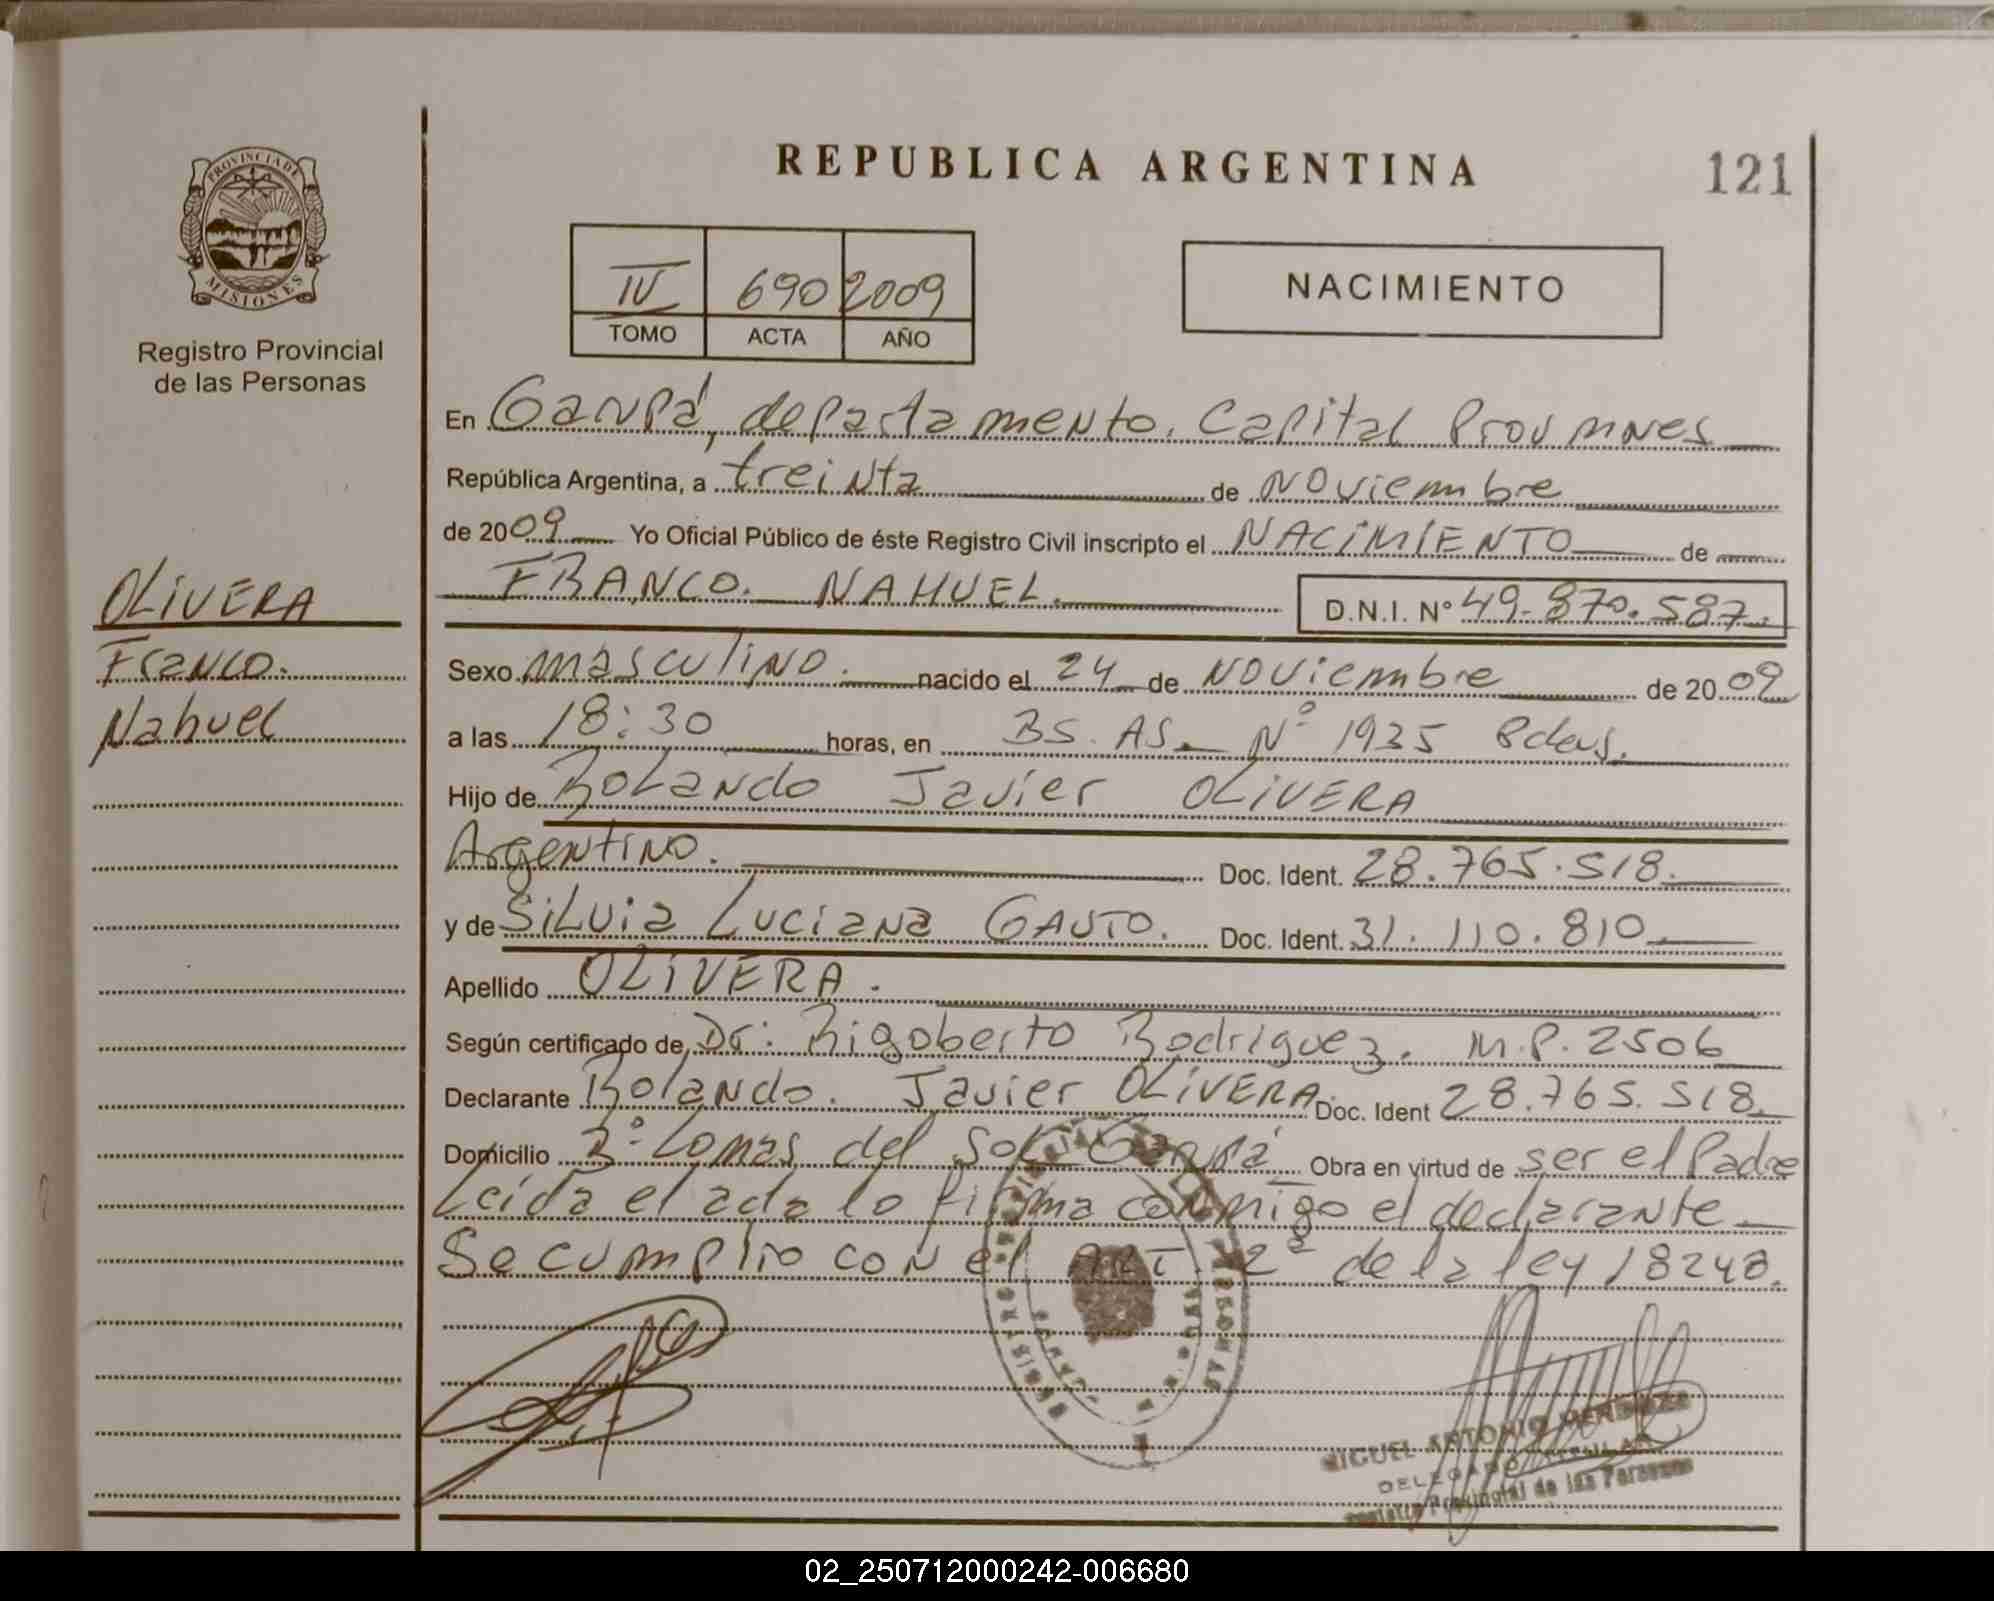 PROVINCIA DE
MISIONES
Registro Provincial
de las Personas
OLIVERA
Franco.
Nahuel
REPUBLICA ARGENTINA
121
IV 690 2009
TOMO ACTA AÑO
NACIMIENTO
En Garupá, departamento. Capital Prov mnes
República Argentina, a treinta de Noviembre
de 2009 Yo Oficial Público de éste Registro Civil inscripto el NACIMIENTO de
FRANCO. NAHUEL. D.N.I. Nº 49.870.587.
Sexo masculino. nacido el 24 de Noviembre de 2009
a las 18:30 horas, en BS. AS. Nº 1935 Pdas.
Hijo de Rolando Javier OLIVERA
Argentino. Doc. Ident. 28.765.518.
y de Silvia Luciana GAUTO. Doc. Ident. 31.110.810.
Apellido OLIVERA.
Según certificado de Dr: Rigoberto Rodriguez. M.P. 2506
Declarante Rolando. Javier OLIVERA. Doc. Ident 28.765.518.
Domicilio Bº Lomas del Sol Garupá Obra en virtud de ser el Padre
Leida el acta lo firma conmigo el declarante
Se cumplio con el ART. 2º de la ley 18248.
MIGUEL ANTONIO
DELEGADO TITULAR
Registro Provincial de las Personas
02_250712000242-006680